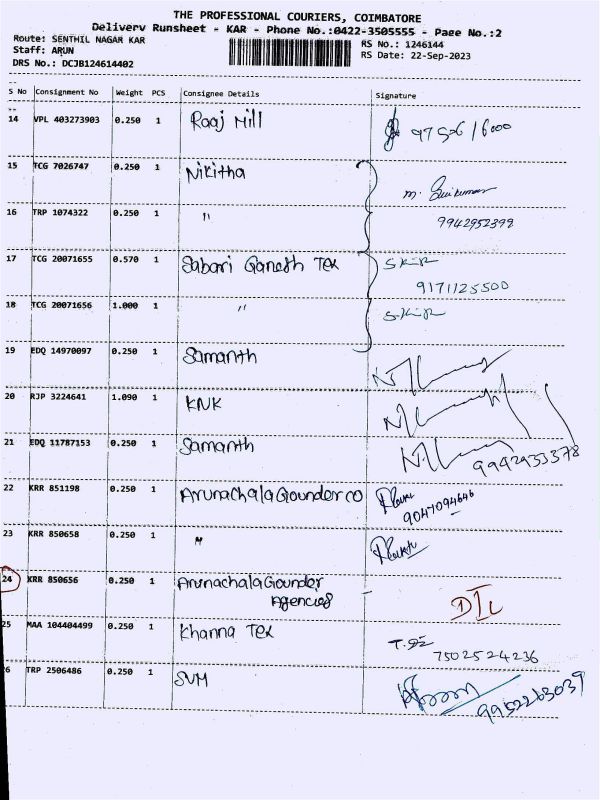 THE PROFESSIONAL COURIERS, COIMBATORE
Delivery Runsheet - KAR - Phone No.:0422-3505555 - Page No.:2
Route: SENTHIL NAGAR KAR
RS No.: 1246144
Staff: ARUN
RS Date: 22-Sep-2023
DRS No.: DCJB124614402
S No Consignment No Weight PCS Consignee Details Signature
14 VPL 403273903 0.250 1 Raaj Mill
15 TCG 7026747 0.250 1 Nikitha
16 TRP 1074322 0.250 1 " 9942952399
17 TCG 20071655 0.570 1 Sabari Ganesh Tex
9171125500
18 TCG 20071656 1.000 1 "
19 EDQ 14970097 0.250 1 Samanth
20 RJP 3224641 1.090 1 KNK
21 EDQ 11787153 0.250 1 Samanth
9942933378
22 KRR 851198 0.250 1 ArunachalaGounder co
9047094646
23 KRR 850658 0.250 1 "
24 KRR 850656 0.250 1 ArunachalaGounder
Agencies
25 MAA 104404499 0.250 1 Khanna Tex
7502524236
26 TRP 2506486 0.250 1 SVM
9952263039